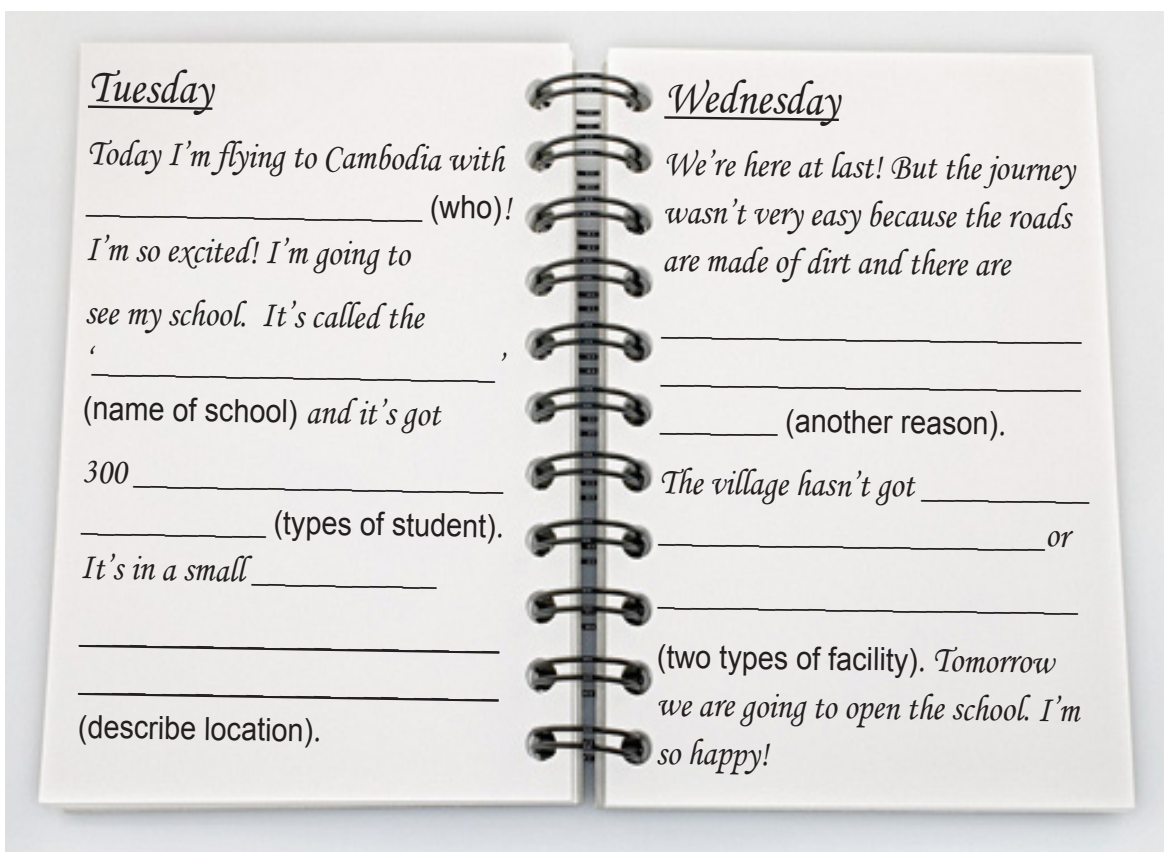 Tuesday
Today I'm flying to Cambodia with
____________________ (who)!
I'm so excited! I'm going to
see my school. It's called the
‘____________________’
(name of school) and it's got
300 ____________________
____________ (types of student).
It's in a small ____________
____________________
____________________
(describe location).
Wednesday
We're here at last! But the journey
wasn't very easy because the roads
are made of dirt and there are
____________________
____________________
________ (another reason).
The village hasn't got __________
____________________ or
____________________
(two types of facility). Tomorrow
we are going to open the school. I'm
so happy!